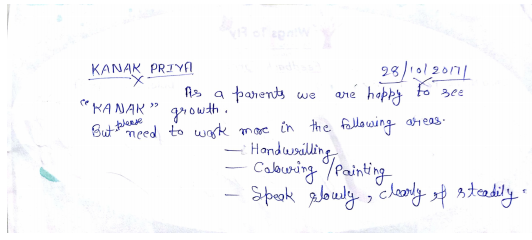 KANAK PRIYA 28/10/2017
As a parents we are happy to see
"KANAK" growth.
But please need to work more in the following areas.
— Handwriting
— Colouring / Painting
— Speak slowly, clearly & steadily.